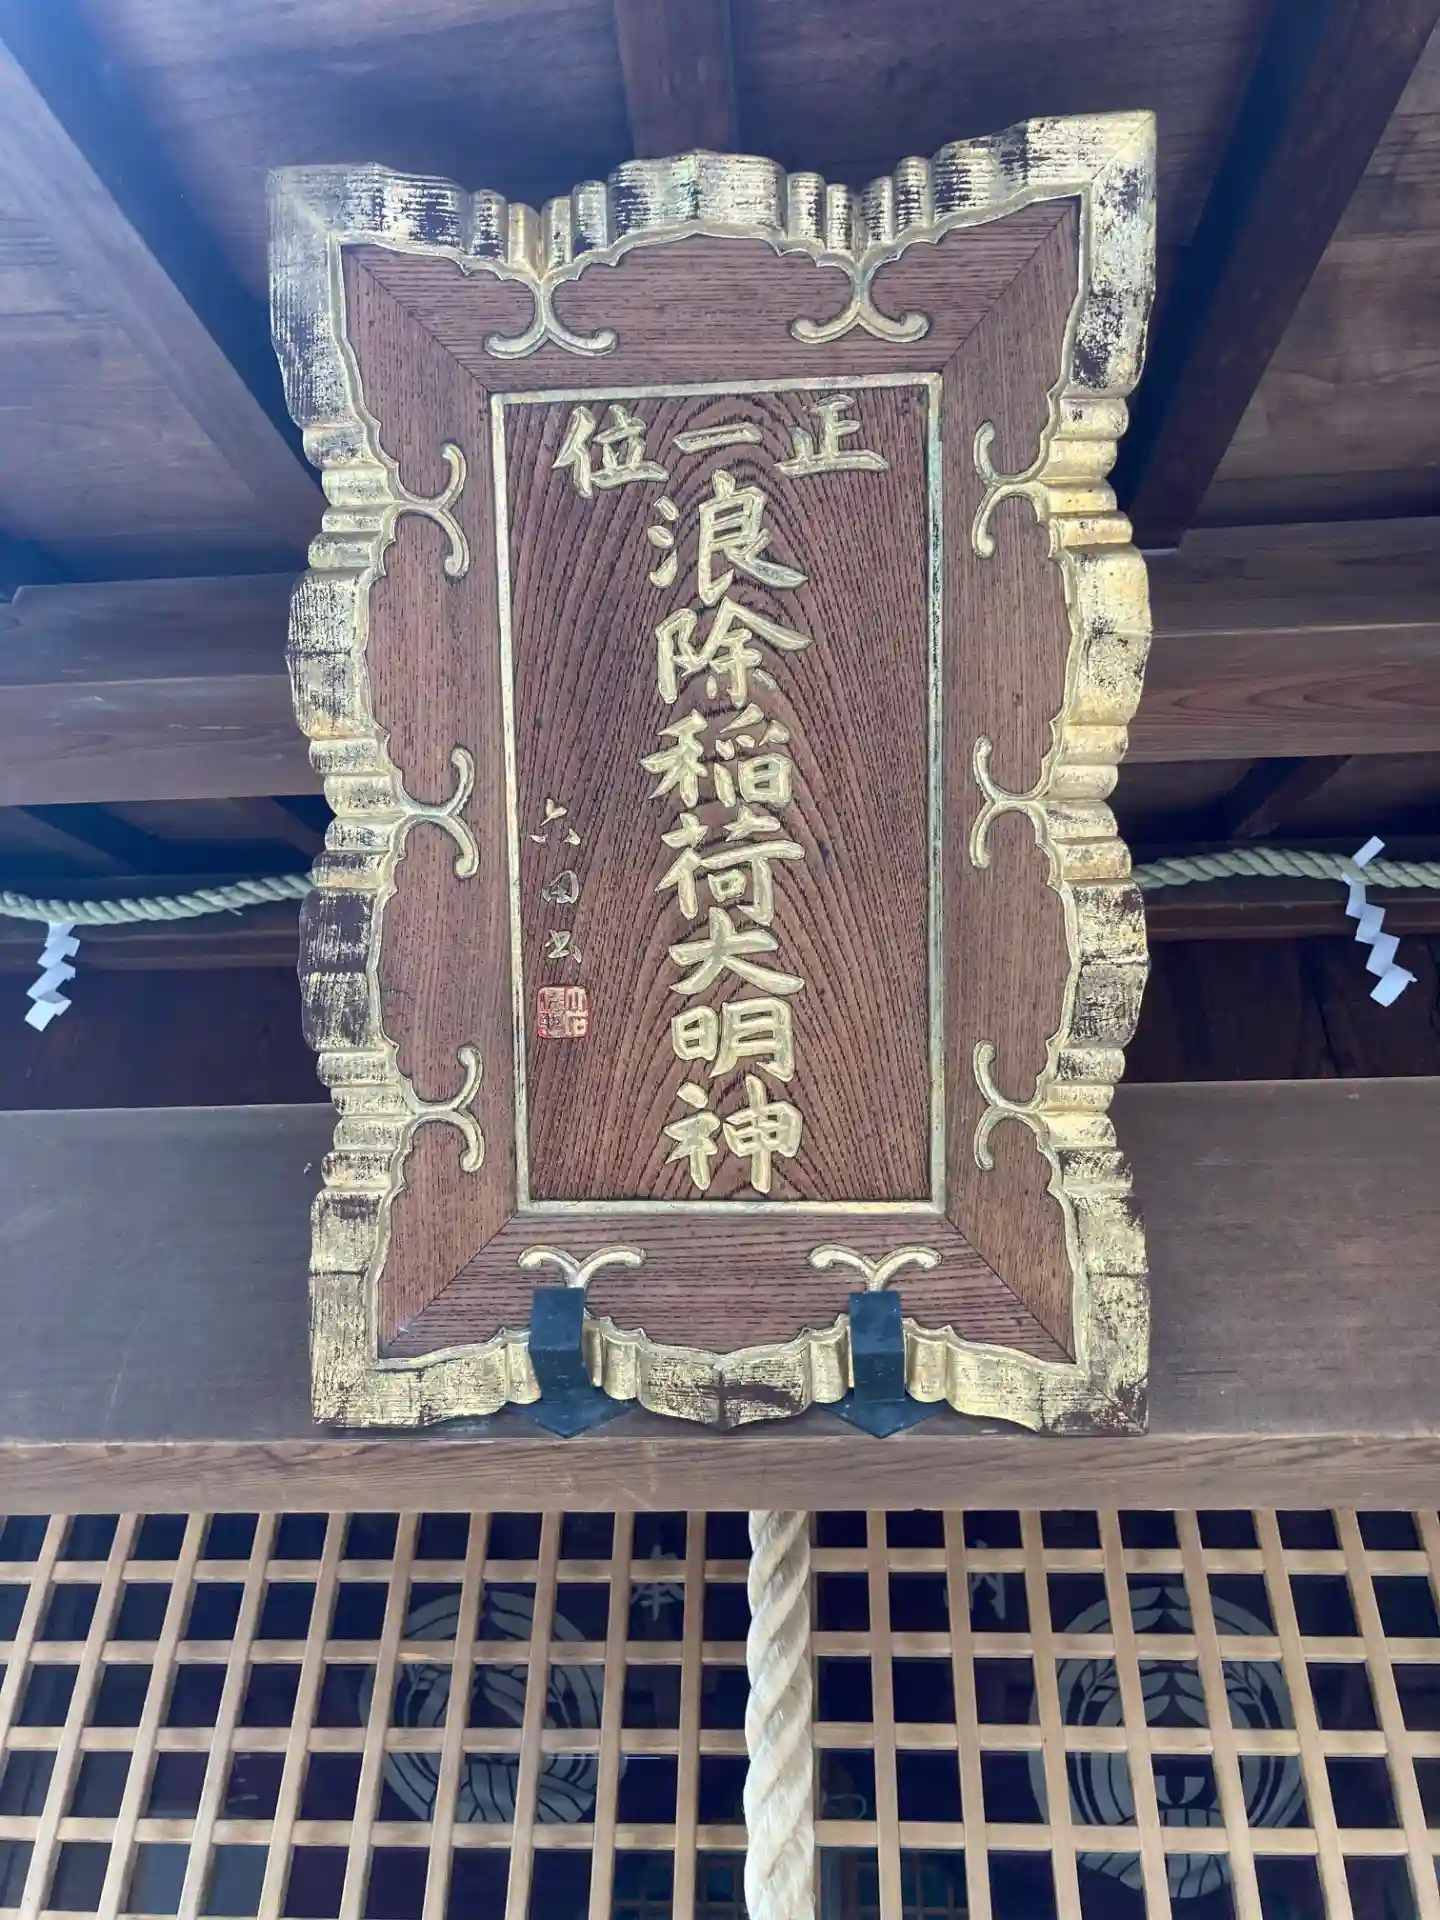 正一位
浪除稲荷大明神
六田書